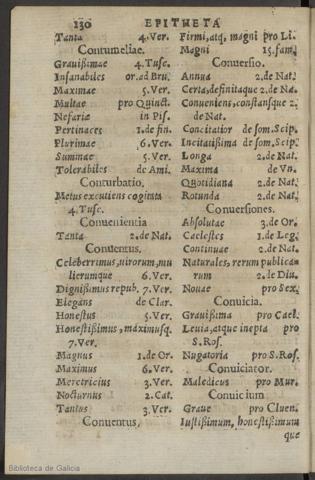 130 EPITHETA
Tanta 4.Ver.
Contumeliae.
Grauißimae 4.Tusc.
Insanabiles or.ad Bru.
Maximae 5.Ver.
Multae pro Quinct.
Nefariæ in Pis.
Pertinaces 1.de fin.
Plurimae 6.Ver.
Summae 5.Ver.
Tolerabiles de Ami.
Conturbatio.
Metus excutiens cogitata
4.Tusc.
Conuenientia
Tanta 2.de Nat.
Conuentus.
Celeberrimus, uirorum, mu
lierumque 6.Ver.
Dignißimus repub. 7.Ver.
Elegans de Clar.
Honestus 5.Ver.
Honestißimus, máximusq.
7.Ver.
Magnus 1.de Or.
Maximus 6.Ver.
Meretricius 3.Ver.
Nocturnus 2.Cat.
Tantus 3.Ver.
Conuentus,
Firmi, atq, magni pro Li.
Magni 15.fam.
Conuersio.
Annua 2.de Nat.
Certa, definitaque 2.de Na.
Conueniens, constansque 2.
de Nat.
Concitatior de som. Scip.
Incitatißima de som. Scip.
Longa 2.de Nat.
Maxima de Vn.
Quotidiana 2.de Nat.
Rotunda 2.de Nat.
Conuersiones.
Absolutae 3.de Or.
Caelestes 1.de Leg.
Continuae 2.de Nat.
Naturales, rerum publica-
rum 2.de Diu.
Nouae pro Sex.
Conuicia.
Grauißima pro Cael.
Leuia, atque inepta pro
S. Ros.
Nugatoria pro S. Ros.
Conuiciator.
Maledicus pro Mur.
Conuicium
Graue pro Cluen.
Iustißimum, honestißimum
que
Biblioteca de Galicia